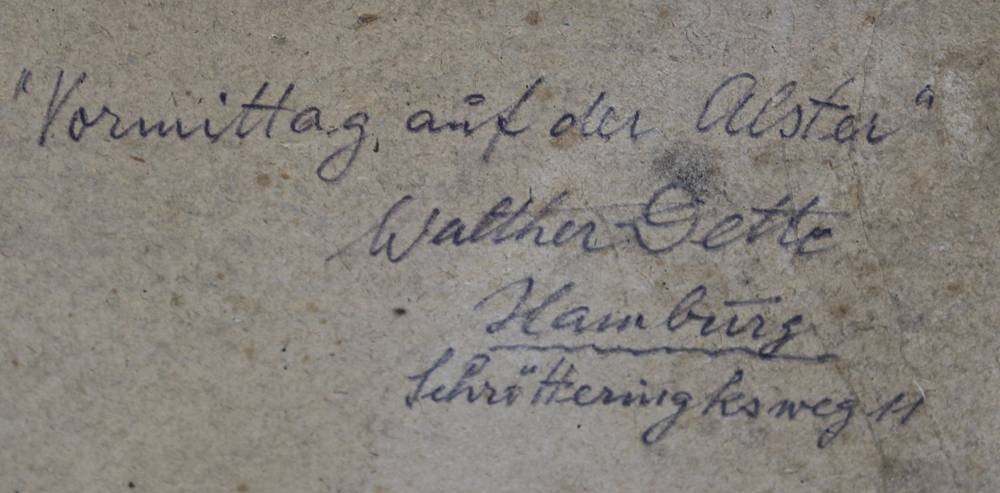 "Vormittag auf der Alster"
Walther Dette
Hamburg
Schrötteringksweg 11